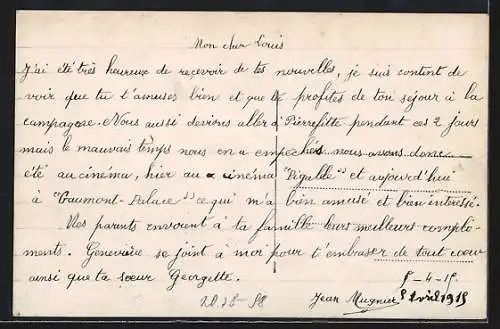 Mon cher Louis
J'ai été très heureux de recevoir de tes nouvelles, je suis content de
voir que tu t'amuses bien et que tu profites de ton séjour à la
campagne. Nous aussi devions aller à Pierrefitte pendant ces 2 jours
mais le mauvais temps nous en a empêchés nous avons donc
été au cinéma, hier au cinéma "Pigalle" et aujourd'hui
à "Gaumont-Palace" ce qui m'a bien amusé et bien intéressé.
Mes parents envoient à ta famille leurs meilleurs compli-
ments. Geneviève se joint à moi pour t'embrasser de tout cœur
ainsi que ta sœur Georgette.
5-4-15.
Jean Mugnier 5 Avril 1915